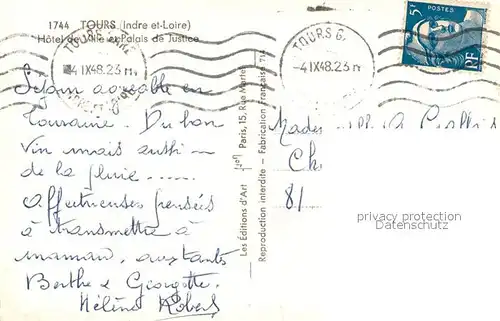 1744 TOURS (Indre-et-Loire)
Hôtel de Ville et Palais de Justice
TOURS GARE
4 IX 48.23 H
TOURS G.
-4 IX 48.23 H
5F POSTES
RF
Séjour agréable en
Touraine. Du bon
vin mais aussi —
de la pluie ......
affectueuses pensées
à transmettre à
maman, aux tantes
Berthe & Georgette.
Hélène Robert
Les Éditions d'Art Yvon Paris, 15, Rue Martel
Reproduction interdite - Fabrication Française 714
Mademoiselle
Ch
81
privacy protection
Datenschutz